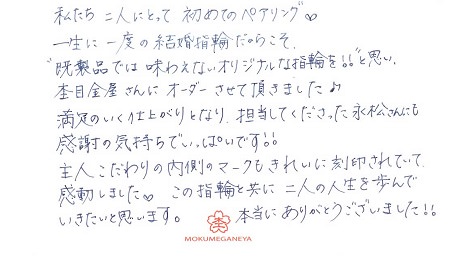 私たち 二人にとって 初めての ペアリング♡
一生に 一度の 結婚指輪だからこそ、
"既製品では 味わえないオリジナルな指輪を!!"と思い、
杢目金屋さんに オーダー させて頂きました♪
満足のいく仕上がりとなり、担当してくださった永松さんにも
感謝の気持ちでいっぱいです!!
主人こだわりの内側のマークもきれいに刻印されていて
感動しました♡ この指輪と共に 二人の人生を歩んで
いきたいと思います。 本当にありがとうございました!!
MOKUMEGANEYA